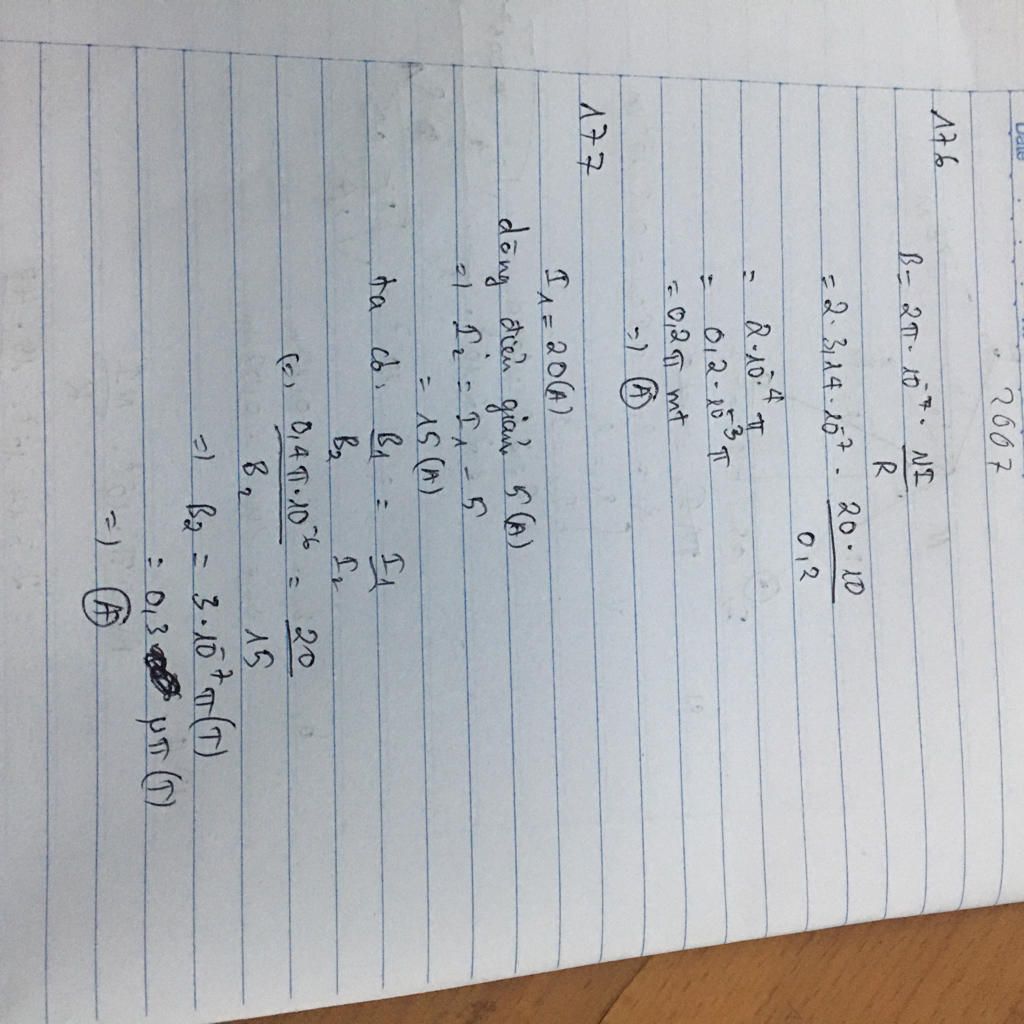 Date
2667
176
B = 2π · 10⁻⁷ · NI / R
= 2 · 3,14 · 10⁻⁷ · 20 · 10 / 0,2
= 2 · 10⁻⁴ π
= 0,2 · 10⁻³ π
= 0,2π mT
=) Ⓐ
177
I₁ = 20(A)
dòng điện giảm 5(A)
=) I₂ = I₁ - 5
= 15(A)
ta có: B₁ / B₂ = I₁ / I₂
(=) 0,4π · 10⁻⁶ / B₂ = 20 / 15
=) B₂ = 3 · 10⁻⁷ π(T)
= 0,3 μπ (T)
=) Ⓐ